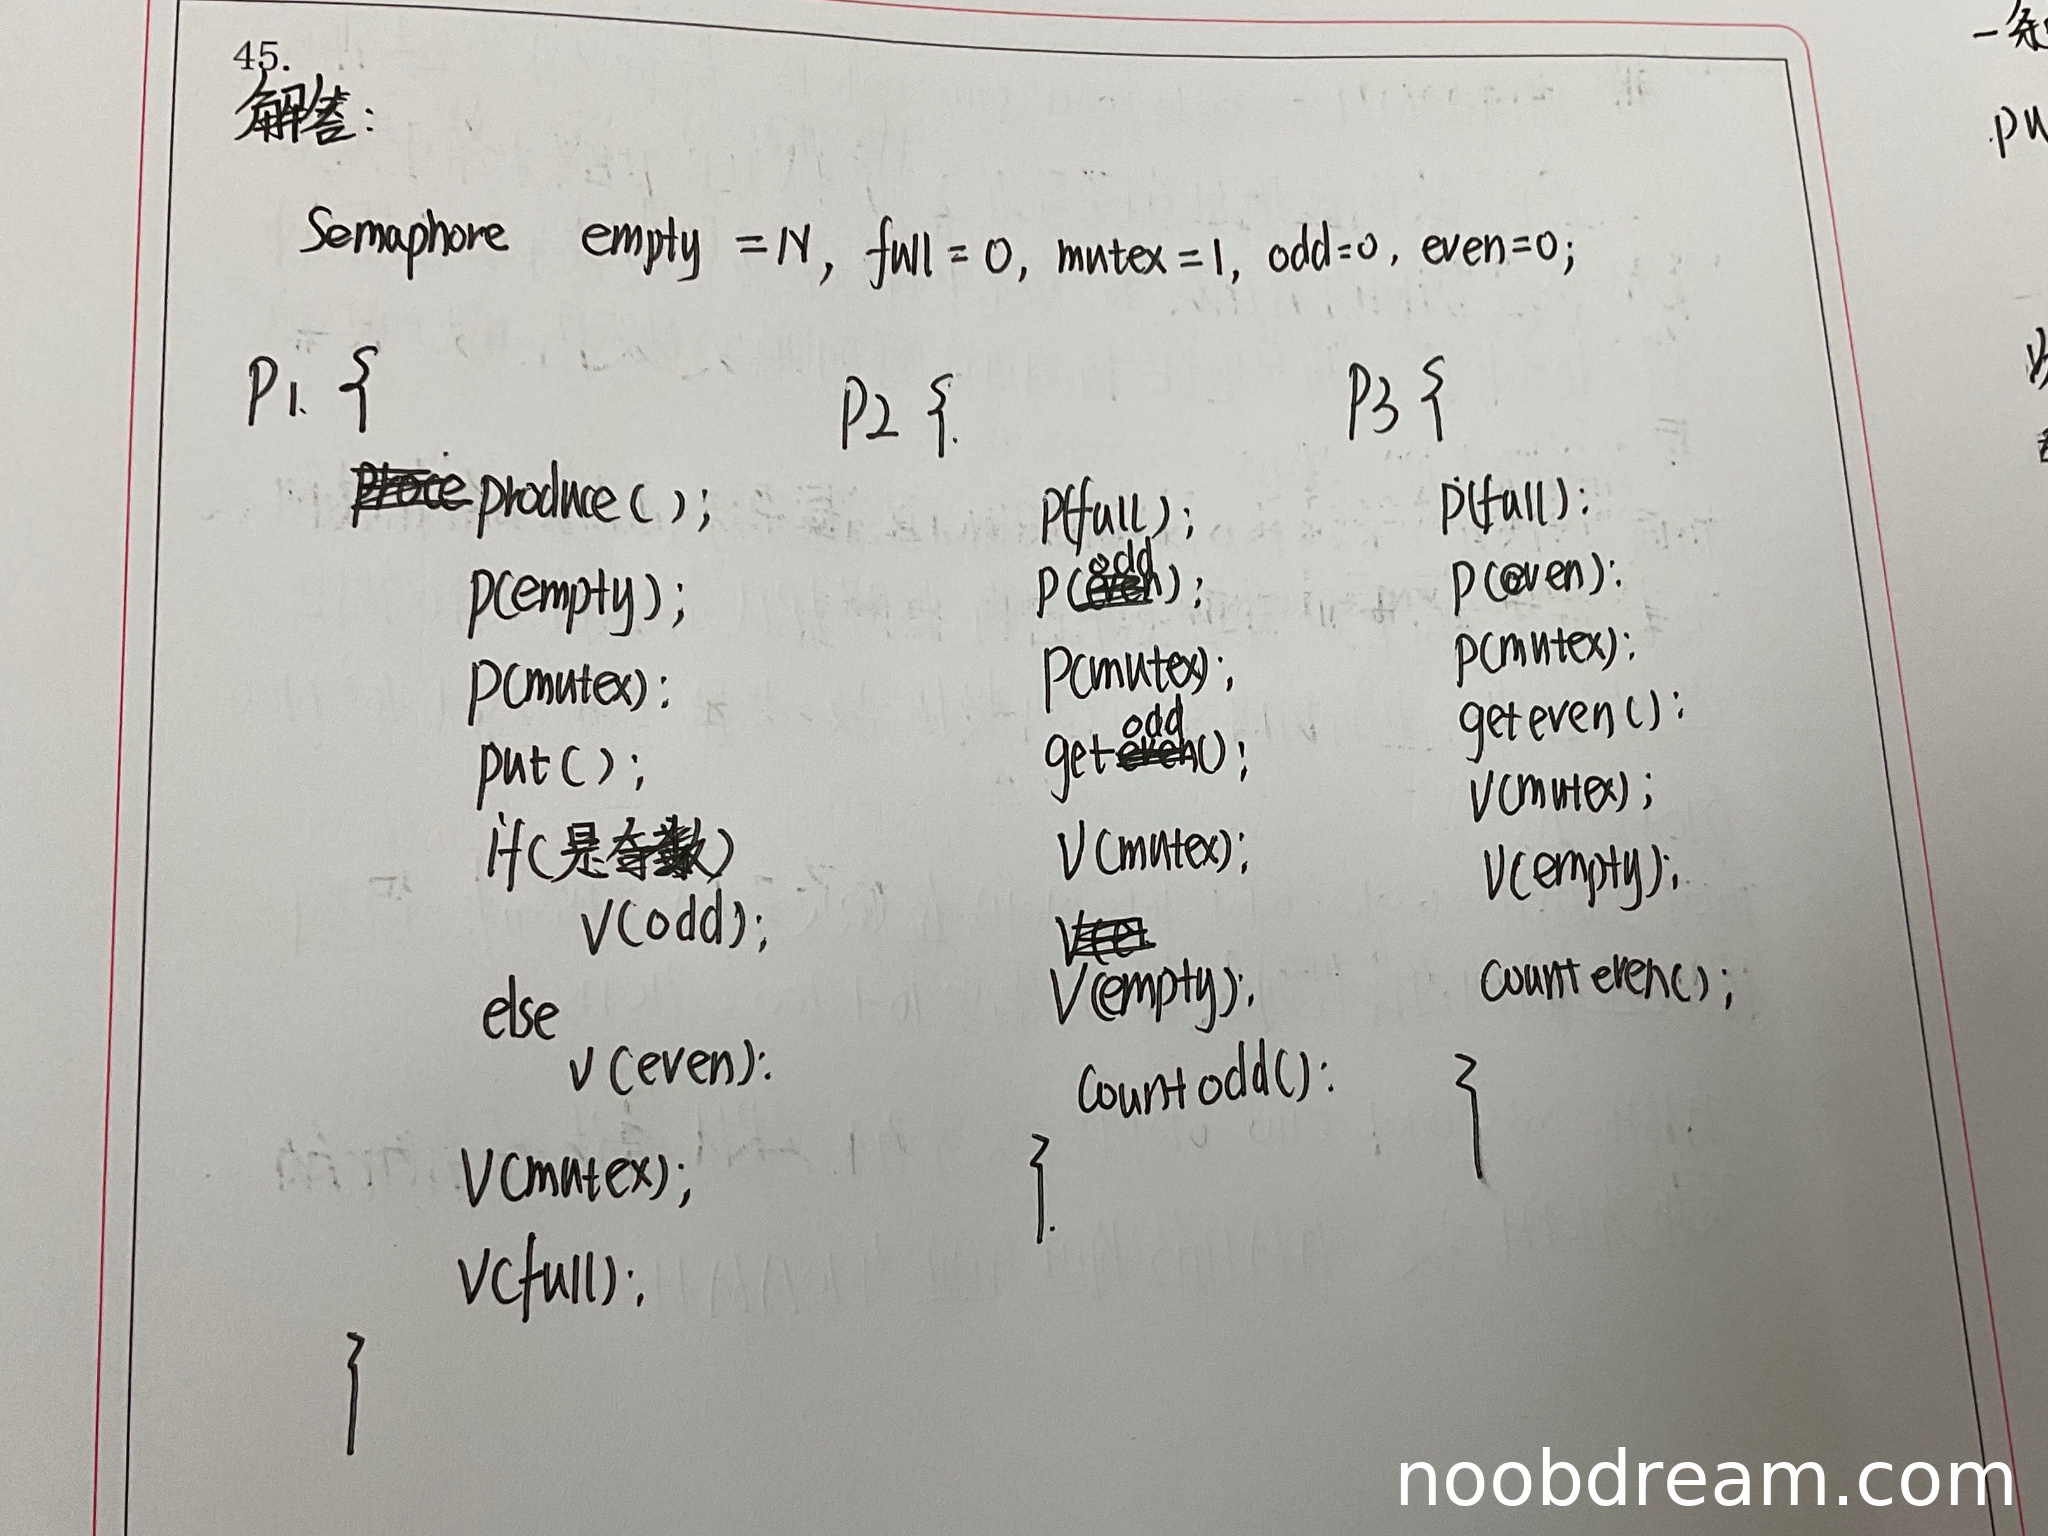 45.
解答:
Semaphore empty = N, full = 0, mutex = 1, odd=0, even=0;
P1. {
produce();
p(empty);
p(mutex):
put();
if(是奇数)
V(odd);
else
V(even):
V(mutex);
V(full);
}
P2 {.
p(full);
p(odd);
p(mutex);
getodd();
V(mutex);
V(empty);
Countodd():
}.
P3 {
p(full):
p(even):
p(mutex):
geteven():
V(mutex);
V(empty);
Counteven();
}
一条
pu
noobdream.com